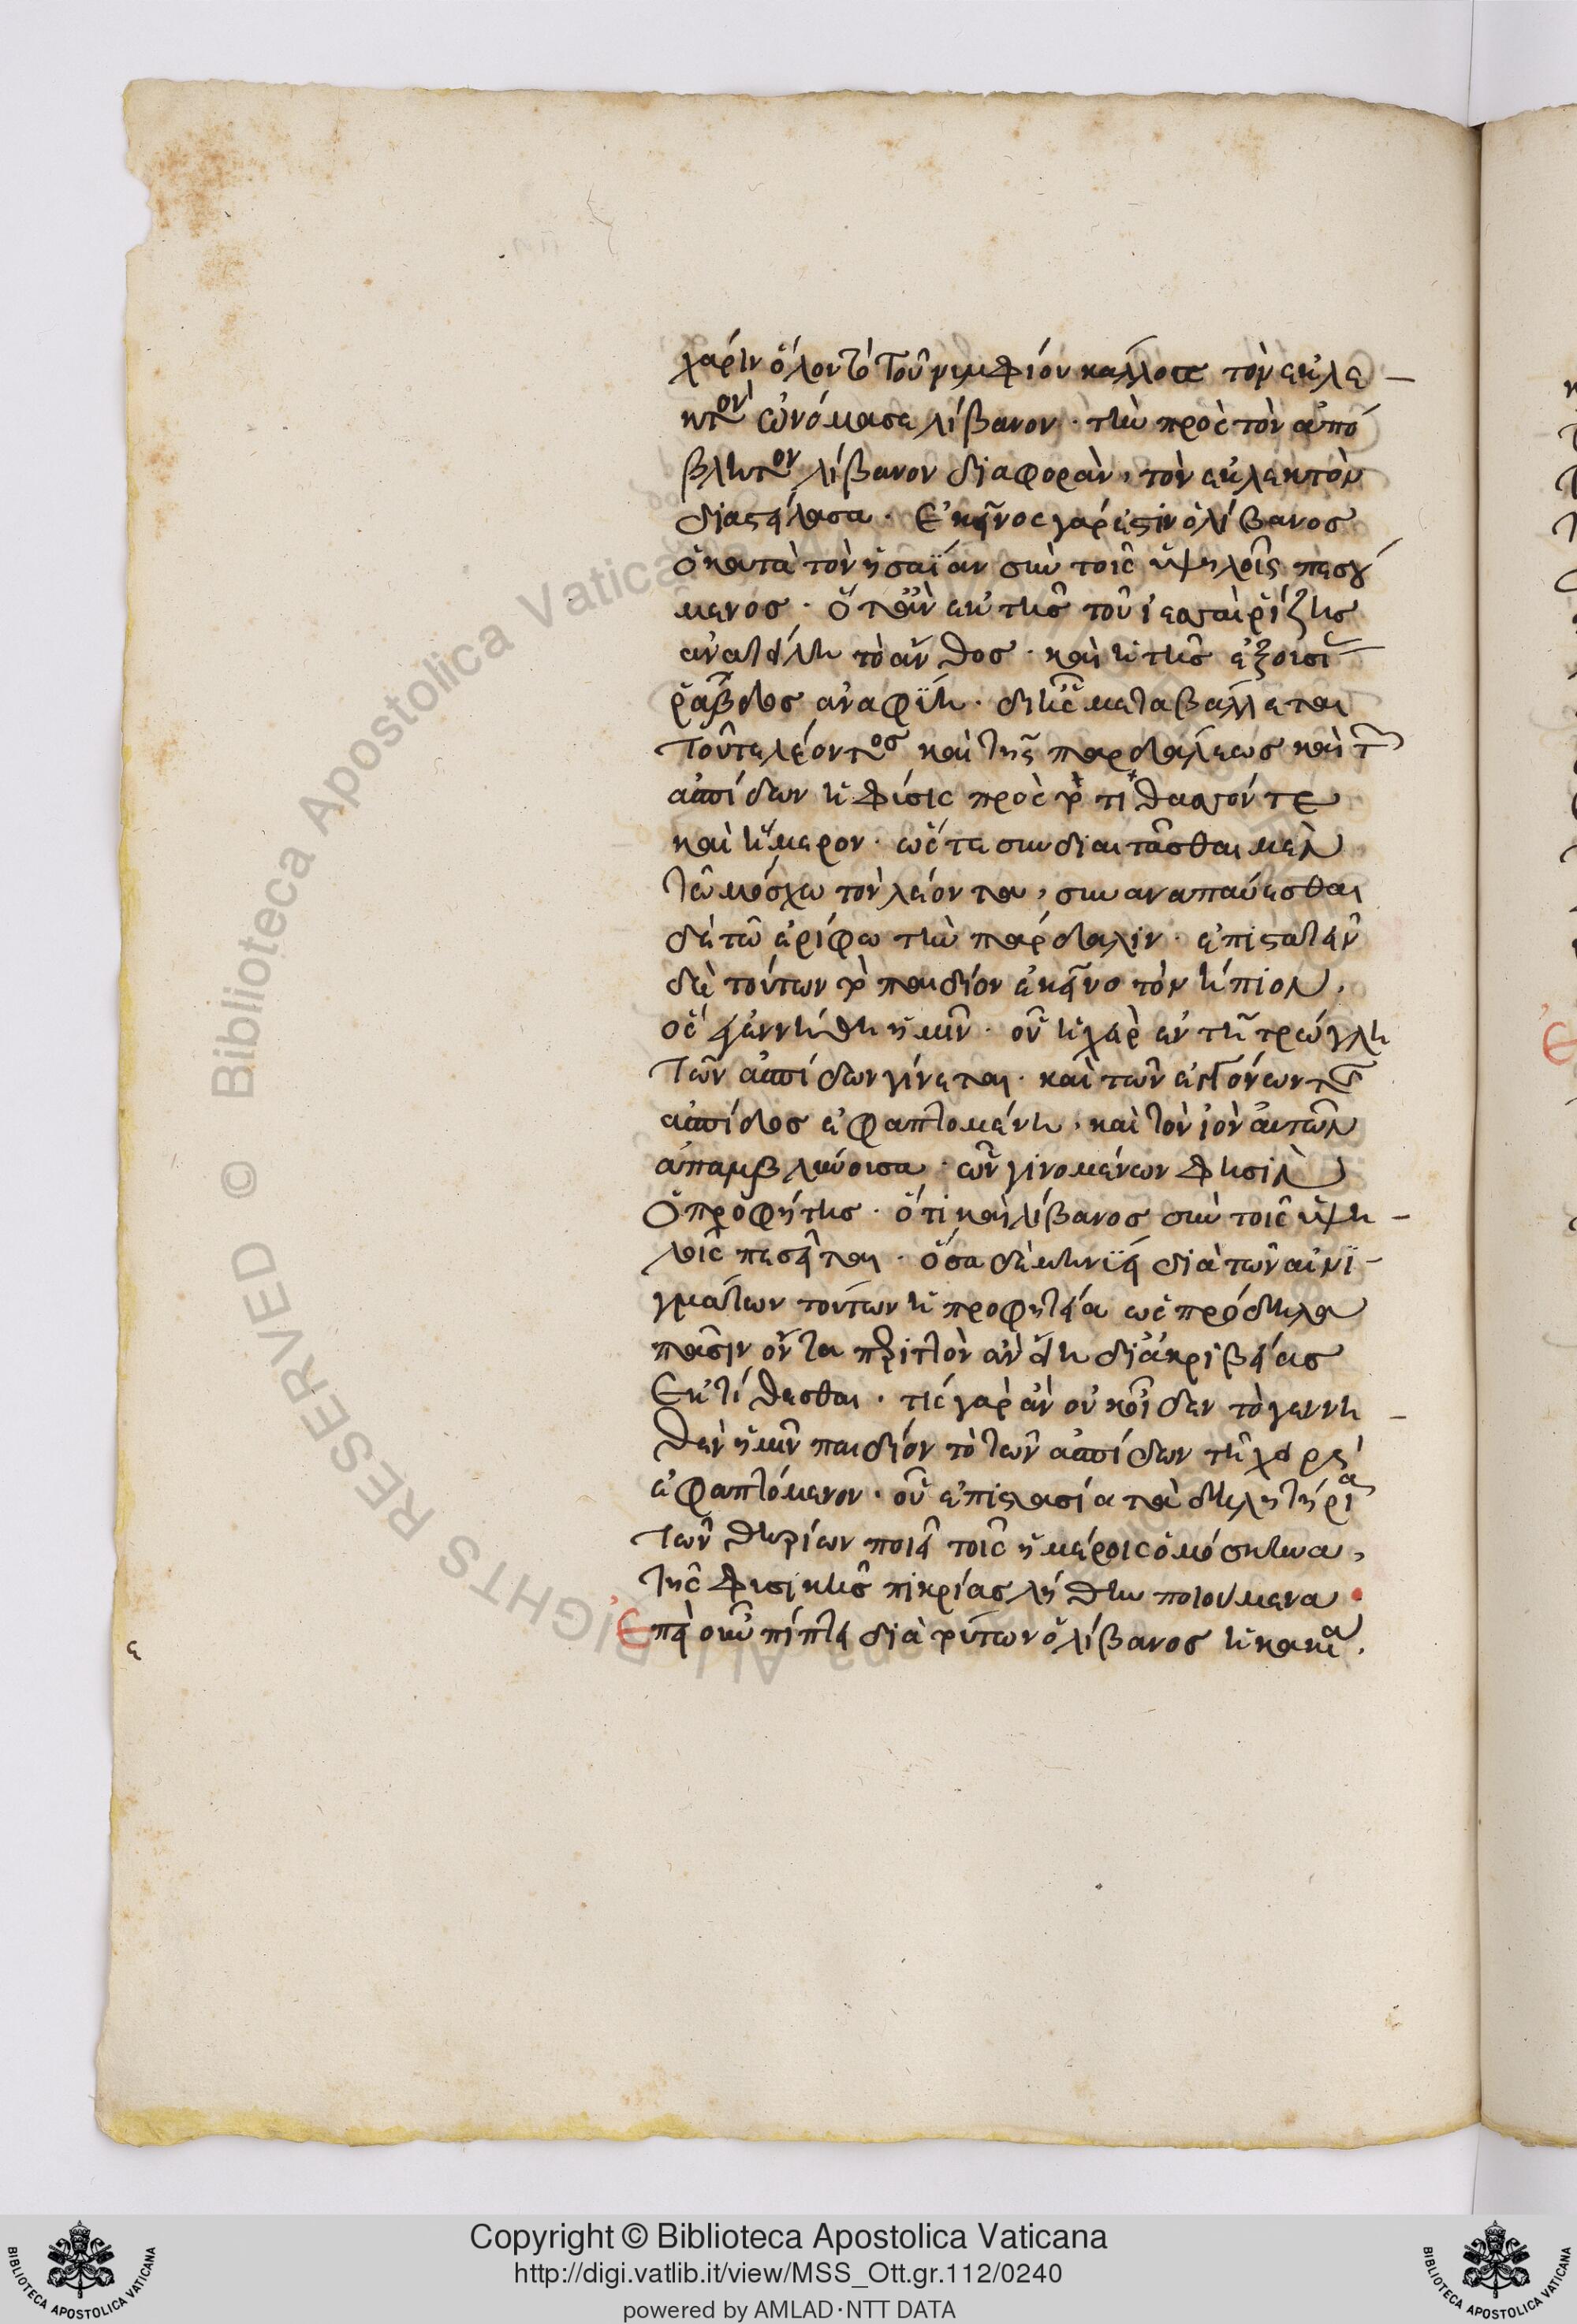 χάριν ὅλον τὸ τοῦ νυμφίου κάλλος τὸν ἐκλε-
κτὸν ὠνόμασε λίβανον· τὴν πρὸς τὸν ἀπό
βλητον λίβανον διαφορὰν, τὸν ἐκλεκτὸν
διαστείλασα. Ἐκεῖνος γάρ ἐστιν ὁ λίβανος
ὁ κατὰ τὸν ἡσαΐαν σὺν τοῖς ὑψηλοῖς πεσού
μενος· ὅταν ἐκ τῆς τοῦ ἰεσσαὶ ῥίζης
ἀνατείλη τὸ ἄνθος· καὶ ἡ τῆς ἐξουσί
ῥάβδος ἀναφύη· δι' ἧς μεταβάλλεται
τοῦ τε λέοντος καὶ τῆς παρδάλεως καὶ τῶν
ἀσπίδων ἡ φύσις πρὸς τὸ τιθασσόν τε
καὶ ἥμερον· ὥστε συνδιαιτᾶσθαι μὲν
τῶ μόσχω τὸν λέοντα, συναναπαύεσθαι
δὲ τῶ ἐρίφω τὴν πάρδαλιν· ἐπιστατεῖν
δὲ τούτων τὸ παιδίον ἐκεῖνο τὸν ἤπιον,
ὃς ἐγεννήθη ἡμῖν· οὗ ἡ χεὶρ ἐν τῆ τρώγλη
τῶν ἀσπίδων γίνεται· καὶ τῶν ἐκγόνων τῆς
ἀσπίδος ἐφαπτομένη, καὶ τὸν ἰὸν αὐτῶν
ἀπαμβλύνουσα· ὧν γινομένων φησὶν
ὁ προφήτης· ὅτι καὶ λίβανος σὺν τοῖς ὑψη-
λοῖς πεσεῖται· ὅσα δὲ μηνύει διὰ τῶν αἰνι-
γμάτων τούτων ἡ προφητεία ὡς πρόδηλα
πᾶσιν ὄντα περιττὸν ἂν εἴη δι' ἀκριβείας
ἐκτίθεσθαι. τίς γὰρ ἂν οὐκ οἶδεν τὸ γεννη-
θὲν ἡμῖν παιδίον τὸ τῶν ἀσπίδων τῆ χειρὶ
ἐφαπτόμενον· οὗ ἐπιστασία τὰ δηλητήρια
τῶν θηρίων ποιεῖ τοῖς ἡμέροις ὁμόσκηνα,
τῆς φυσικῆς πικρίας λήθην ποιούμενα.
Ἐπεὶ οὖν πίπτει διὰ τούτων ὁ λίβανος ἡ κακία.
ε
Copyright © Biblioteca Apostolica Vaticana
http://digi.vatlib.it/view/MSS_Ott.gr.112/0240
powered by AMLAD·NTT DATA